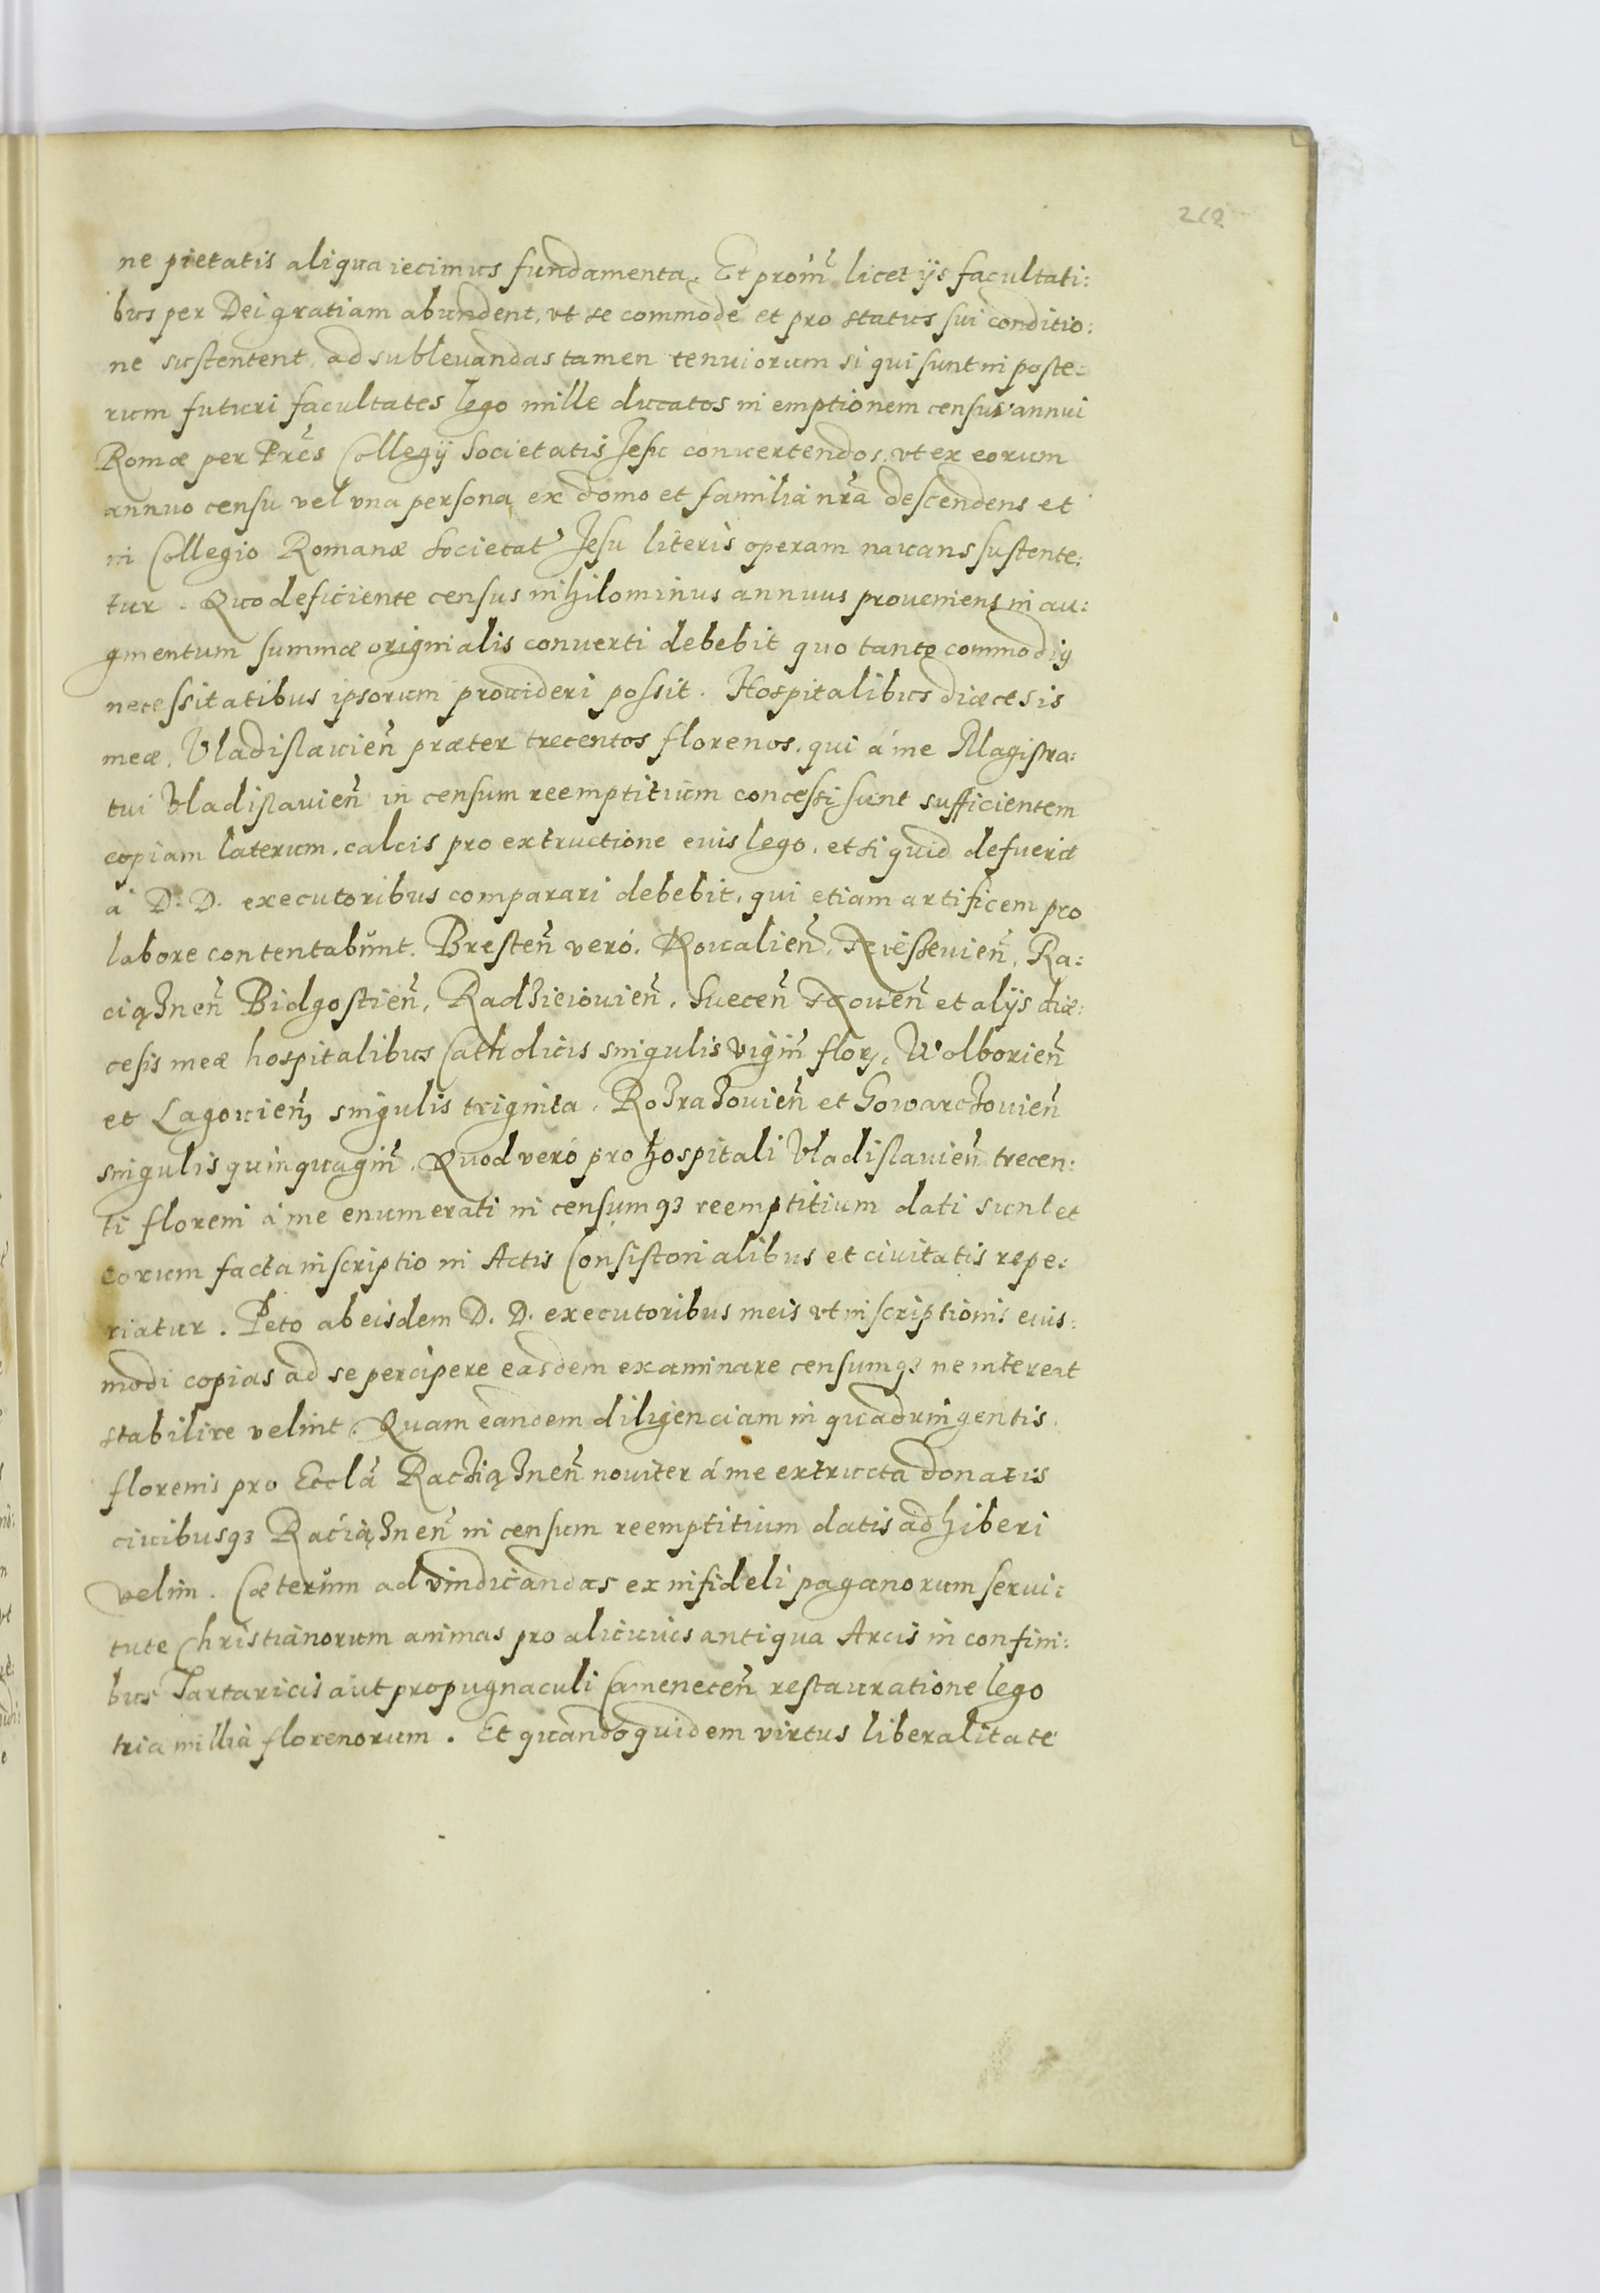 212
ne pietatis aliqua iecimus fundamenta. Et prom̃ licet ijs facultati:
bus per Dei gratiam abundent, vt se commode et pro status sui conditio:
ne sustentent, ad subleuandas tamen tenuiorum si qui sunt in poste:
rum futuri facultates lego mille ducatos in emptionem census annui
Romæ per Prẽs Collegij Societatis Jesu conuertendos, vt ex eorum
annuo censu vel vna persona ex domo et familia nr̃a descendens et
in Collegio Romanæ Societat' Jesu literis operam nauans sustente:
tur. Quo deficiente census nihilominus annuus proueniens in au:
gmentum summæ originalis conuerti debebit quo tanto commodiq
necessitatibus ipsorum prouideri possit. Hospitalibus diæcesis
meæ, Vladislauien̄ præter trecentos florenos, qui á me Magistra:
tui Vladislauien̄ in censum reemptitium concessi sunt sufficientem
copiam laterum, calcis pro extructione euis lego, et si quid defuerit
á D. D. executoribus comparari debebit, qui etiam artificem pro
labore contentabũnt. Bresten̄ veró, Kowalien̄, Ra:
ciąznen̄ Bidgostien̄, Radzieiouien̄, Suecen̄ et alijs diæ:
cesis meæ hospitalibus Catholicis singulis vigin̄ flor, Wolborien̄
et Lagouien̄ singulis triginta. Rozrazouien̄ et Gowarczouien̄
singulis quinquagin̄. Quod veró pro hospitali Vladislauien̄ trecen:
ti floreni á me enumerati in censumq3 reemptitium dati sunt et
eorum facta inscriptio in Actis Consistorialibus et ciuitatis repe:
riatur. Peto ab eisdem D. D. executoribus meis vt inscriptionis euis:
modi copias ad se percipere easdem examinare censumq3 ne intereat
stabilire velint. Quam eandem diligenciam in quadringentis
florenis pro Ecclã Racziąznen̄ nouiter á me extructa donatis
ciuibusq3 Raciąznen̄ in censum reemptitium datis adhiberi
velim. Cæterũm ad vindicandas ex infideli paganorum serui:
tute Christianorum animas pro alicuius antiqua Arcis in confini:
bus Tartaricis aut propugnaculi Camenecen̄ restauratione lego
tria millia florenorum. Et quandoquidem virtus liberalitate